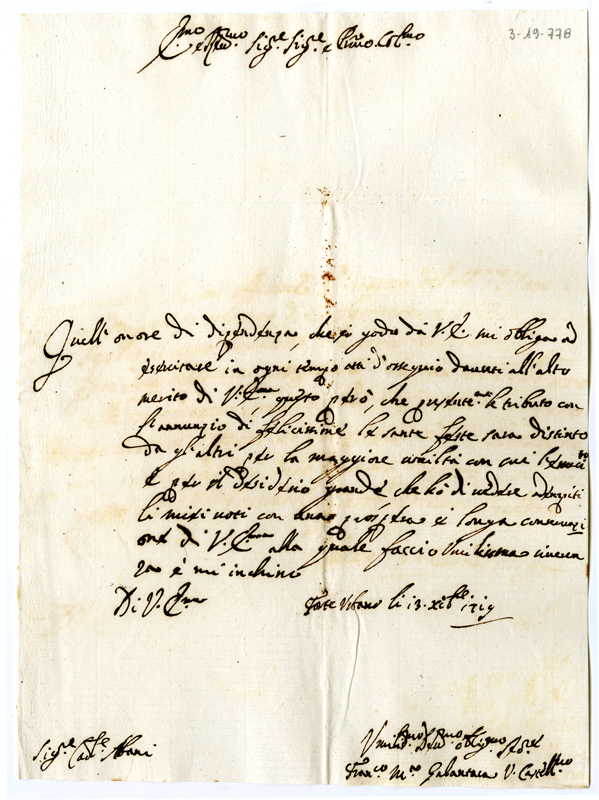 3-19-778
Em.mo e Rev.mo Sig.re Sig.re e P.rone Col.mo
Quell'onore di dipendenza, che io godo da V. E. mi obliga ad
esercitare in ogni tempo atti d'ossequio davanti all'alto
merito di V. E.ma questo però, che presente.mte le tributo con
l'annunzio di felicissime le sante feste sarà distinto
da gli altri per la maggiore umiltà con cui
e per il desiderio grande che hò di vedere adempiti
li miei voti con una prospera e longa conservazi
one di V. E.ma alla quale faccio umilissima riveren
za e mi inchino
Di V. E.ma
Forte Urbano li 13. Xb.re 1719
Sig.re Card.le Albani
Umil.mo Dev.mo Oblig.mo S.re
Fran.co M.a V. Castell.no